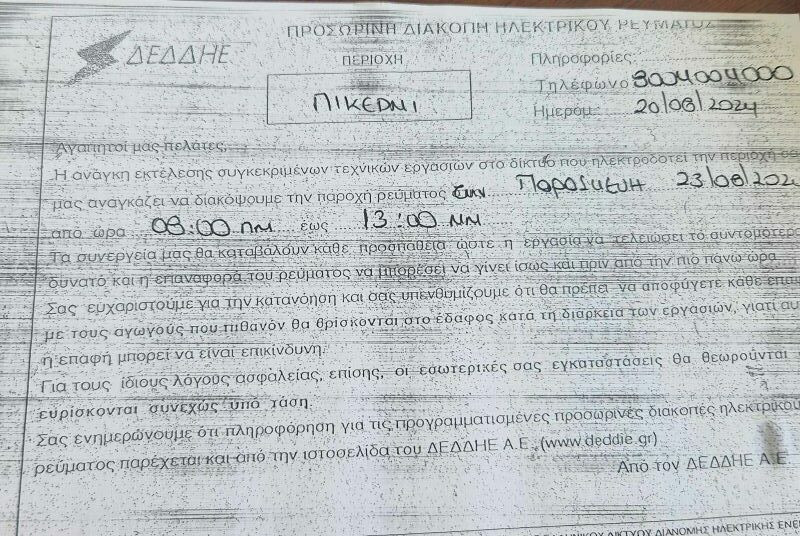 ΠΡΟΣΩΡΙΝΗ ΔΙΑΚΟΠΗ ΗΛΕΚΤΡΙΚΟΥ ΡΕΥΜΑΤΟΣ
ΔΕΔΔΗΕ
ΠΕΡΙΟΧΗ
ΠΙΚΕΡΜΙ
Πληροφορίες:
Τηλέφωνο 8004004000
Ημερομ.: 20/08/2024
Αγαπητοί μας πελάτες,
Η ανάγκη εκτέλεσης συγκεκριμένων τεχνικών εργασιών στο δίκτυο που ηλεκτροδοτεί την περιοχή
μας αναγκάζει να διακόψουμε την παροχή ρεύματος την Παρασκευή 23/08/202
από ώρα 08:00 ΠΜ έως 13:00 ΜΜ
Τα συνεργεία μας θα καταβάλουν κάθε προσπάθεια ώστε η εργασία να τελειώσει το συντομότερο
δυνατό και η επαναφορά του ρεύματος να μπορέσει να γίνει ίσως και πριν από την πιο πάνω ώρα
Σας ευχαριστούμε για την κατανόηση και σας υπενθυμίζουμε ότι θα πρέπει να αποφύγετε κάθε
με τους αγωγούς που πιθανόν θα βρίσκονται στο έδαφος κατά τη διάρκεια των εργασιών, γιατί
η επαφή μπορεί να είναι επικίνδυνη.
Για τους ίδιους λόγους ασφαλείας, επίσης, οι εσωτερικές σας εγκαταστάσεις θα θεωρούνται
ευρίσκονται συνεχώς υπό τάση.
Σας ενημερώνουμε ότι πληροφόρηση για τις προγραμματισμένες προσωρινές διακοπές ηλεκτρικού
ρεύματος παρέχεται και από την ιστοσελίδα του ΔΕΔΔΗΕ Α.Ε. (www.deddie.gr)
Από τον ΔΕΔΔΗΕ Α.Ε
ΔΙΚΤΥΟΥ ΔΙΑΝΟΜΗΣ ΗΛΕΚΤΡΙΚΗΣ